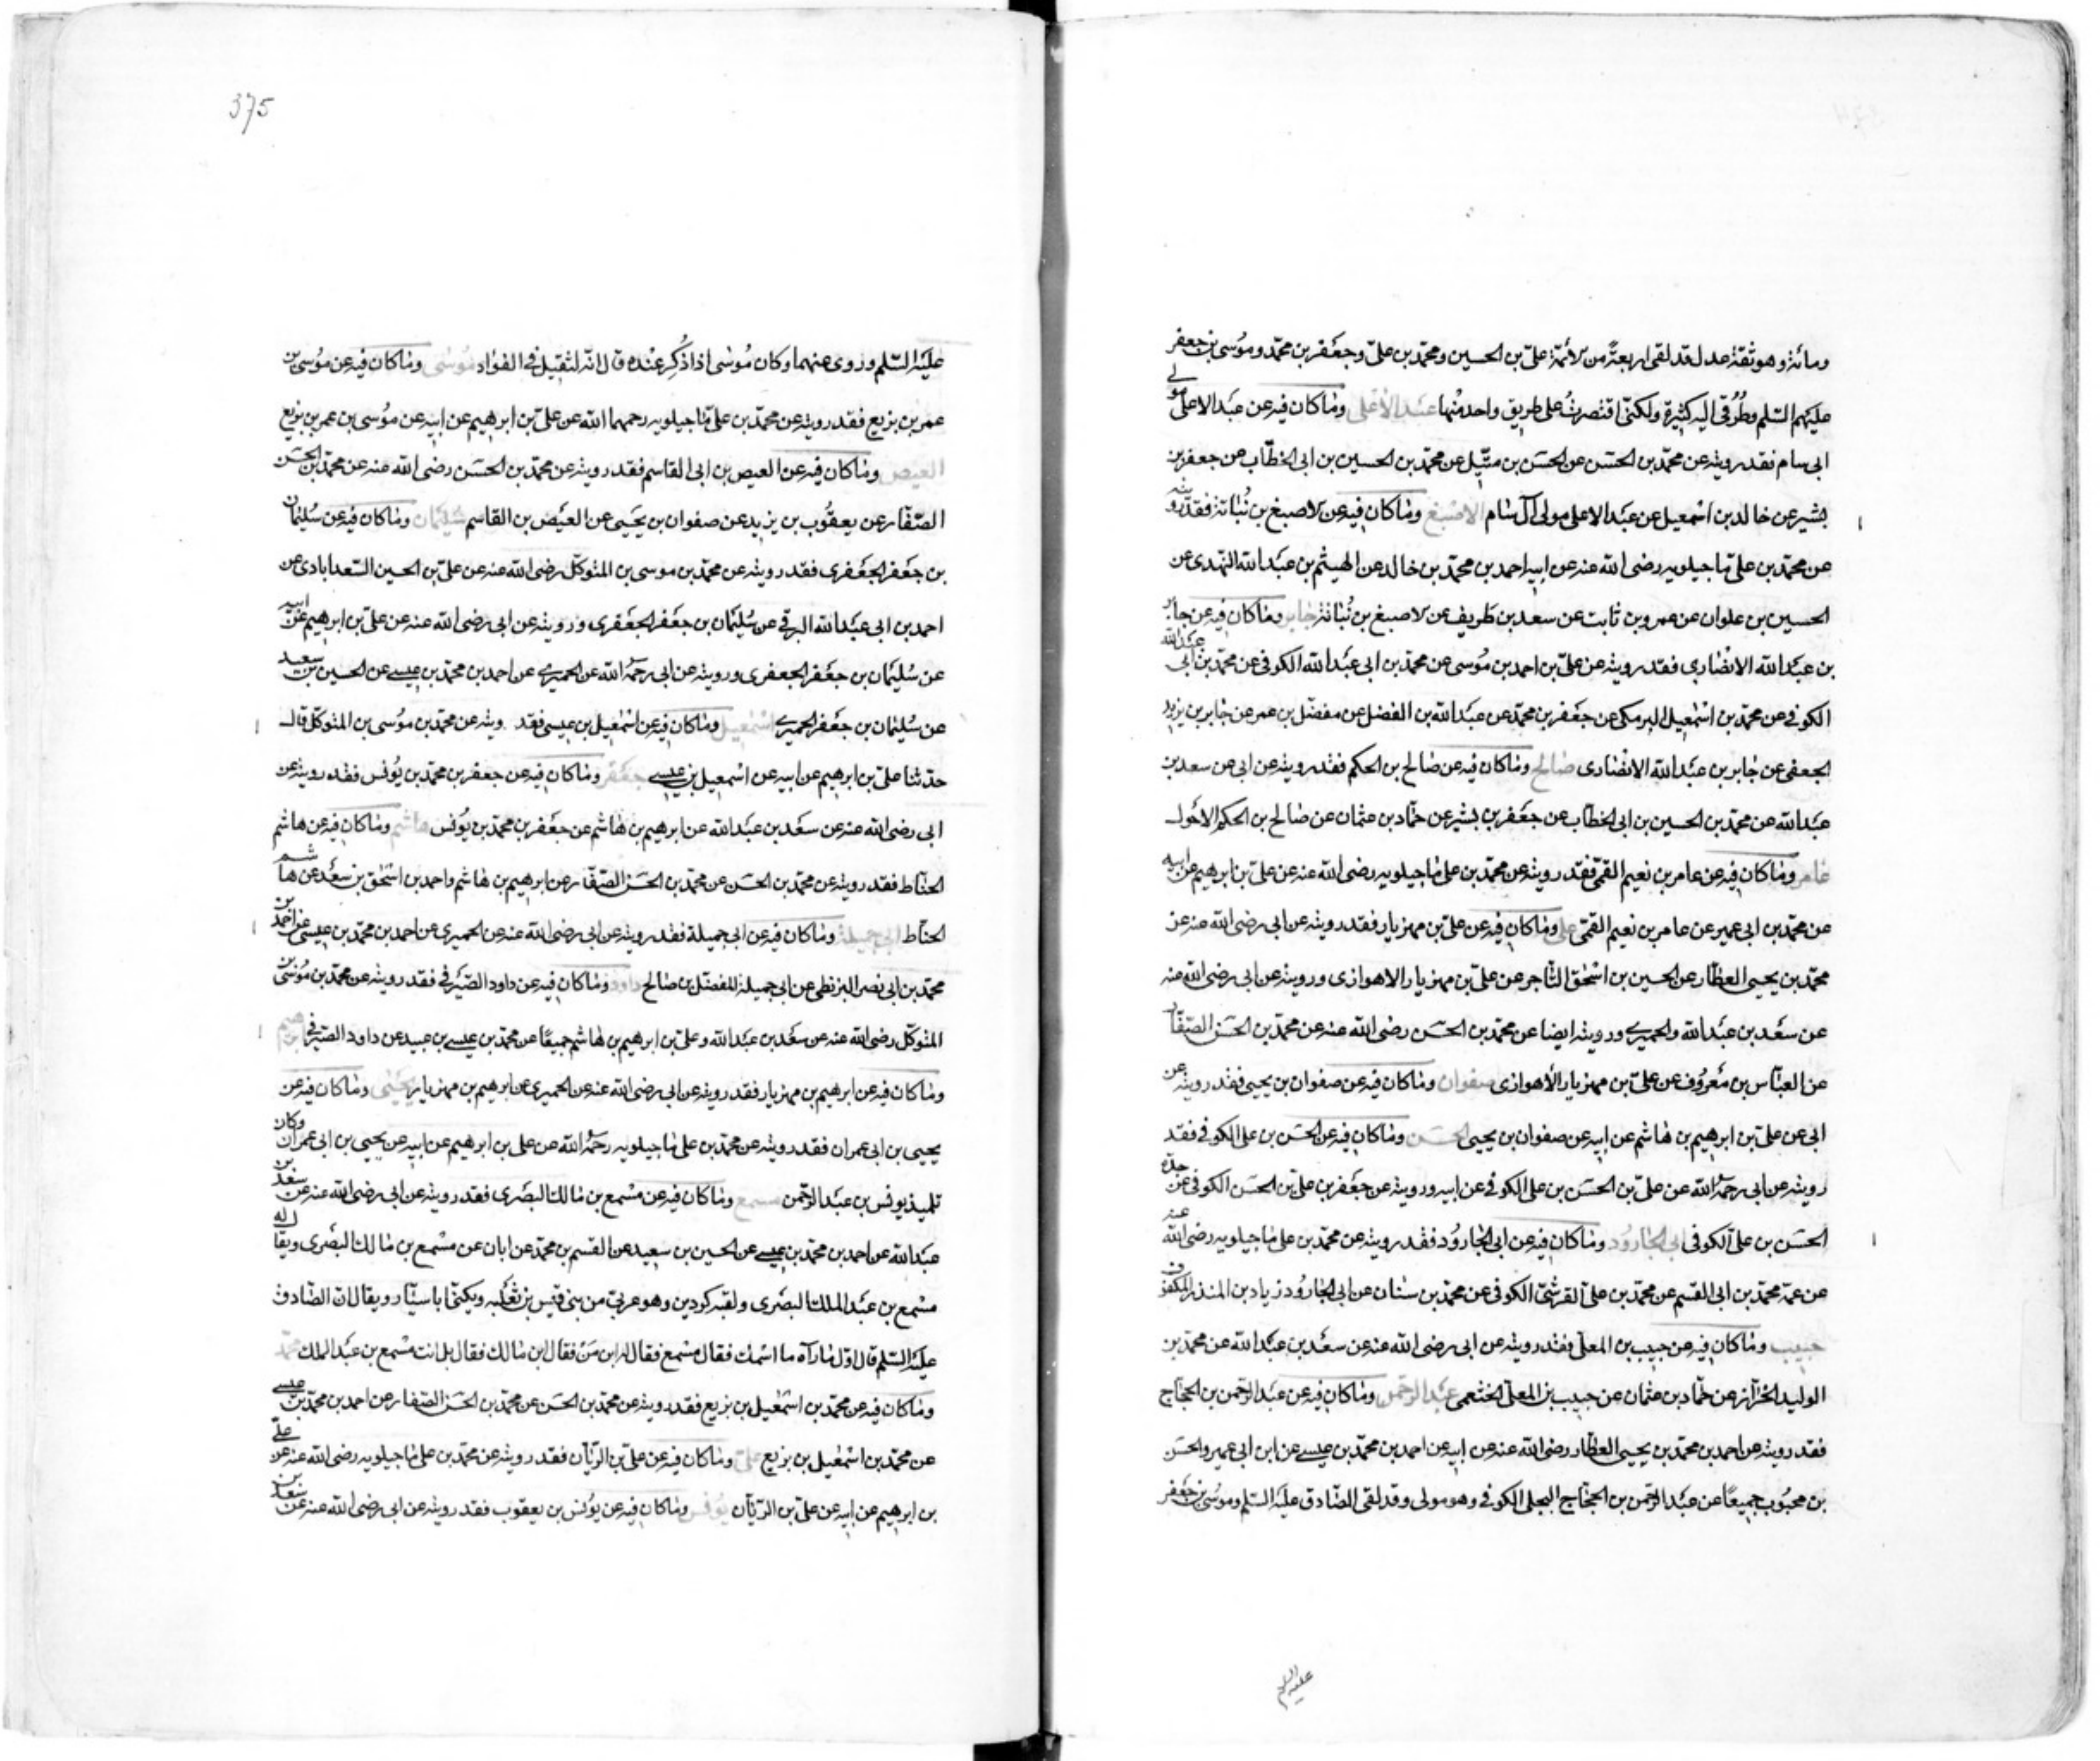 ومائة وهو ثقة عدل قد لقى اربعة من الأئمة علىّ بن الحسين ومحمّد بن علىّ وجعفر بن محمّد وموُسى بن جعفر
عليهم السّلم وطُرُقى اليه كثيرة ولكنّى اقتصرتُ على طريق واحد منْها عبد الأعلى وما كان فيه عن عبد الاعلى مولى
ابى سام فقد رويته عن محمّد بن الحسَن عن الحسَن بن متّيل عن محمّد بن الحسين بن ابى الخطّاب عن جعفر بن
بشير عن خالد بن اسْمعيل عن عبد الاعلى مولى آل سام الاصبغ وما كان فيه عن الاصبغ بن نُباتة فقد رويته
عن محمّد بن علىّ ماجيلويه رضى الله عنه عن ابيه احمد بن محمّد بن خالد عن الهيثم بن عبد الله النّهدى عن
الحسين بن علوان عن عمرو بن ثابت عن سعد بن طَريف عن الاصبغ بن نُباتة جابر وما كان فيه عن جابر
بن عبد الله الانْصارى فقد رويته عن علىّ بن احمد بن موُسى عن محمّد بن ابى عبد الله الكوفى عن محمّد بن ابى عبد الله
الكوفى عن محمّد بن اسْمعيل البرمكى عن جعفر بن محمّد عن عبد الله بن الفضل عن مفضّل بن عمر عن جابر بن يزيد
الجعفى عن جابر بن عبد الله الانْصارى صالح وما كان فيه عن صالح بن الحكم فقد رويته عن ابى عن سعد بن
عبد الله عن محمّد بن الحسين بن ابى الخطّاب عن جعفر بن بشير عن حمّاد بن عثمان عن صالح بن الحكم الاحْول
عامر وما كان فيه عن عامر بن نعيم القمّى فقد رويته عن محمّد بن على ماجيلويه رضى الله عنه عن علىّ بن ابرهيم عن ابيه
عن محمّد بن ابى عمير عن عامر بن نعيم القمّى على وما كان فيه عن علىّ بن مهزيار فقد رويته عن ابى رضى الله عنه عن
محمّد بن يحيى العطّار عن الحسين بن اسْحٰق التّاجر عن علىّ بن مهزيار الاهوازى ورويته عن ابى رضى الله عنه
عن سعْد بن عبد الله والحميرى ورويته ايضا عن محمّد بن الحسَن رضى الله عنه عن محمّد بن الحسَن الصّفّار
عن العبّاس بن معروُف عن علىّ بن مهزيار الأهوازى صفوان وما كان فيه عن صفوان بن يحيى فقد رويته عن
ابى عن علىّ بن ابرهيم بن هاشم عن ابيه عن صفوان بن يحيى الحسَن وما كان فيه عن الحسَن بن على الكوفى فقد
رويته عن ابى رحمهُ الله عن علىّ بن الحسَن بن على الكوفى عن ابيه ورويته عن جعفر بن علىّ بن الحسَن الكوفى عن جدّه
الحسَن بن علىّ الكوفى ابى الجاروُد وما كان فيه عن ابى الجاروُد فقد رويته عن محمّد بن على ماجيلويه رضى الله عنه
عن عمّه محمّد بن ابى القسم عن محمّد بن علىّ القرشىّ الكوفى عن محمّد بن سنان عن ابى الجاروُد زياد بن المنذر المكفوف
حبيب وما كان فيه عن حبيب بن المعلّى فقد رويته عن ابى رضى الله عنه عن سعْد بن عبد الله عن محمّد بن
الوليد الخزّاز عن حمّاد بن عثمان عن حبيب بن المعلّى الخثعمى عبد الرّحمن وما كان فيه عن عبد الرّحمن بن الحجّاج
فقد رويته عن احمد بن محمّد بن يحيى العطّار رضى الله عنه عن ابيه عن احمد بن محمّد بن عيسى عن ابن ابى عمير والحسَن
بن محبوُب جميعًا عن عبد الرّحمن بن الحجّاج البجلى الكوفى وهو مولى وقد لقى الصّادق عليه السّلم وموُسى بن جعفر
عليه السلم
375
عليه السّلم وروى عنهما وكان موُسى اذا ذُكِر عنْده قال انّه لثقيل فى الفؤاد موُسى وما كان فيه عن موُسى بن
عمر بن بزيع فقد رويته عن محمّد بن علىّ ماجيلويه رحمهما الله عن علىّ بن ابرهيم عن ابيه عن موُسى بن عمر بن بزيع
العيص وما كان فيه عن العيص بن ابى القاسم فقد رويته عن محمّد بن الحسَن رضى الله عنه عن محمّد بن الحسَن
الصّفّار عن يعقوُب بن يزيد عن صفوان بن يحيى عن العيص بن القاسم سُليمان وما كان فيه عن سُليمان
بن جعفر الجعْفرى فقد رويته عن محمّد بن موسى بن المتوكّل رضى الله عنه عن علىّ بن الحسين السّعدابادى عن
احمد بن ابى عبد الله البرقى عن سُليمان بن جعفر الجعْفرى ورويته عن ابى رضى الله عنه عن علىّ بن ابرهيم عن ابيه
عن سُليمان بن جعفر الجعفرى ورويته عن ابى رحمهُ الله عن الحميرى عن احمد بن محمّد بن عيسى عن الحسين بن سعيد
عن سُليمان بن جعفر الحميرى اسْمعيل وما كان فيه عن اسْمعيل بن عيسى فقد ويته عن محمّد بن موُسى بن المتوكّل قال
حدّثنا علىّ بن ابرهيم عن ابيه عن اسْمعيل بن عيسى جعفر وما كان فيه عن جعفر بن محمّد بن يوُنس فقد رويته عن
ابى رضى الله عنه عن سعْد بن عبد الله عن ابرهيم بن هاشم عن جعفر بن محمّد بن يوُنس هاشم وما كان فيه عن هاشم
الحنّاط فقد رويته عن محمّد بن الحسَن عن محمّد بن الحسَن الصّفّار عن ابرهيم بن هاشم واحمد بن اسْحٰق بن سعْد عن هاشم
الحنّاط ابى جميلة وما كان فيه عن ابى جميلة فقد رويته عن ابى رضى الله عنه عن الحميرى عن احمد بن محمّد بن عيسى عن احمد بن
محمّد بن ابى نصر البزنطى عن ابى جميلة المفضّل بن صالح داود وما كان فيه عن داود الصّيرفى فقد رويته عن محمّد بن موُسى بن
المتوكّل رضى الله عنه عن سعْد بن عبد الله وعلىّ بن ابرهيم بن هاشم جميعًا عن محمّد بن عيسى بن عبيد عن داود الصّيرفى ابرهيم
وما كان فيه عن ابرهيم بن مهزيار فقد رويته عن ابى رضى الله عنه عن الحميرى عن ابرهيم بن مهزيار يحيى وما كان فيه عن
يحيى بن ابى عمران فقد رويته عن محمّد بن على ماجيلويه رحمهُ الله عن على بن ابرهيم عن ابيه عن يحيى بن ابى عمران وكان
تلميذ يونس بن عبد الرّحمن مسمع وما كان فيه عن مسْمع بن مالك البصْرى فقد رويته عن ابى رضى الله عنه عن سعْد بن
عبد الله عن احمد بن محمّد بن عيسى عن الحسين بن سعيد عن القسم بن محمّد عن ابان عن مسْمع بن مالك البصْرى ويقال له
مسْمع بن عبد الملك البصْرى ولقبه كردين وهو عربىّ من بنى قيْس بن ثعْلبه ويكنّى ابا سيّار ويقال انّ الصّادق
عليه السّلم قال اوّل ما رآه ما اسْمك فقال مسْمع فقال ابن مَنْ فقال ابن مالك فقال بل انت مسْمع بن عبد الملك محمّد
وما كان فيه عن محمّد بن اسْمعيل بن بزيع فقد رويته عن محمّد بن الحسَن عن محمّد بن الحسَن الصّفار عن احمد بن محمّد بن عيسى
عن محمّد بن اسْمعيل بن بزيع علىّ وما كان فيه عن علىّ بن الرّيّان فقد رويته عن محمّد بن على ماجيلويه رضى الله عنه عن علىّ
بن ابرهيم عن ابيه عن علىّ بن الرّيّان يوُنس وما كان فيه عن يوُنس بن يعقوب فقد رويته عن ابى رضى الله عنه عن سعْد بن